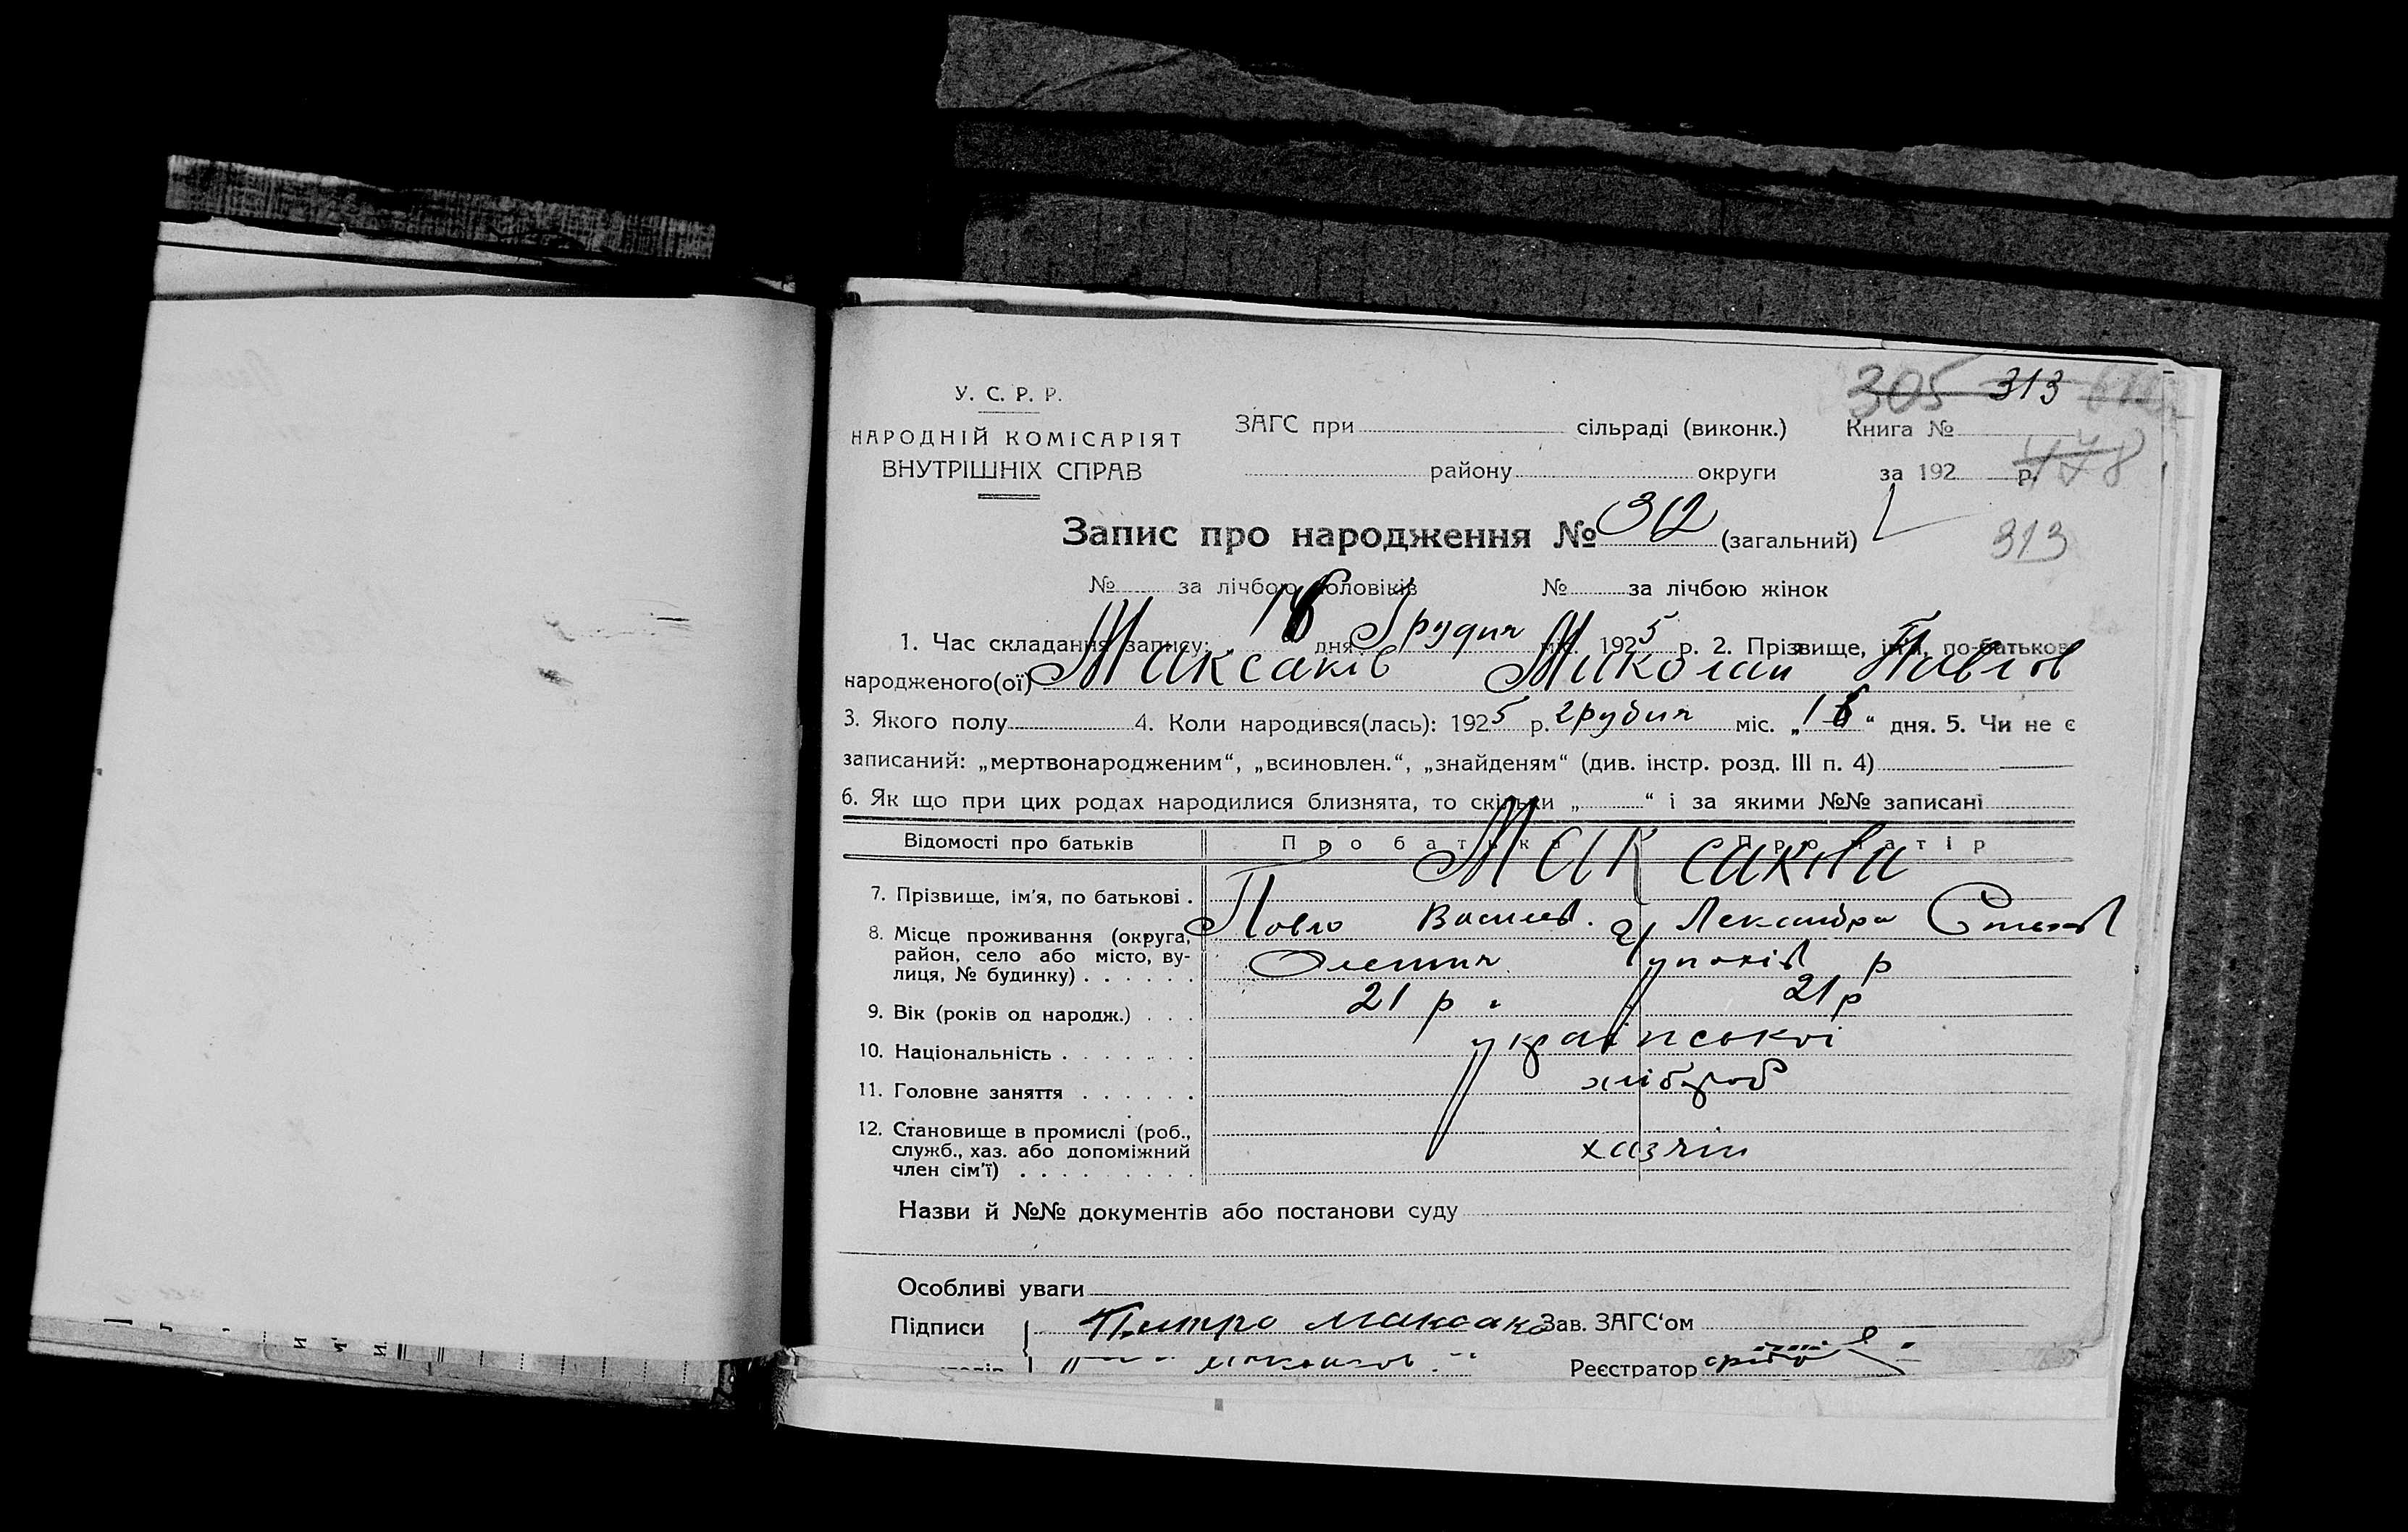 305 313
У. С. Р. Р.
НАРОДНІЙ КОМІСАРІЯТ
ВНУТРІШНІХ СПРАВ
ЗАГС при сільраді (виконк.) Книга №
району округи за 192 р. 178
Запис про народження № 312 (загальний) 313
№ за лічбою чоловіків № за лічбою жінок
1. Час складання запису: 18 дня Грудня міс. 1925 р. 2. Прізвище, ім'я, по-батькові
народженого(ої) Максаків Миколай Павлов
3. Якого полу 4. Коли народився(лась): 1925 р. грудня міс. „ “ дня. 5. Чи не є
записаний: „мертвонародженим“, „всиновлен.“, „знайденям“ (див. інстр. розд. III п. 4)
6. Як що при цих родах народилися близнята, то скільки „ “ і за якими №№ записані
Відомості про батьків Про батька Про матір
Максакови
7. Прізвище, ім'я, по батькові . Павло Васильев. Лександра
8. Місце проживання (округа, район, село або місто, вулиця, № будинку) . . . . . .
9. Вік (років од народж.) . . . 21 р. 21 р
10. Національність . . . . . . . української
11. Головне заняття . . . . . . хлібороб
12. Становище в промислі (роб., служб., хаз. або допоміжний член сім'ї) . . . . . . . . . хазяїн
Назви й №№ документів або постанови суду
Особливі уваги
Підписи Петро Максаков Зав. ЗАГС‘ом
Реєстратор